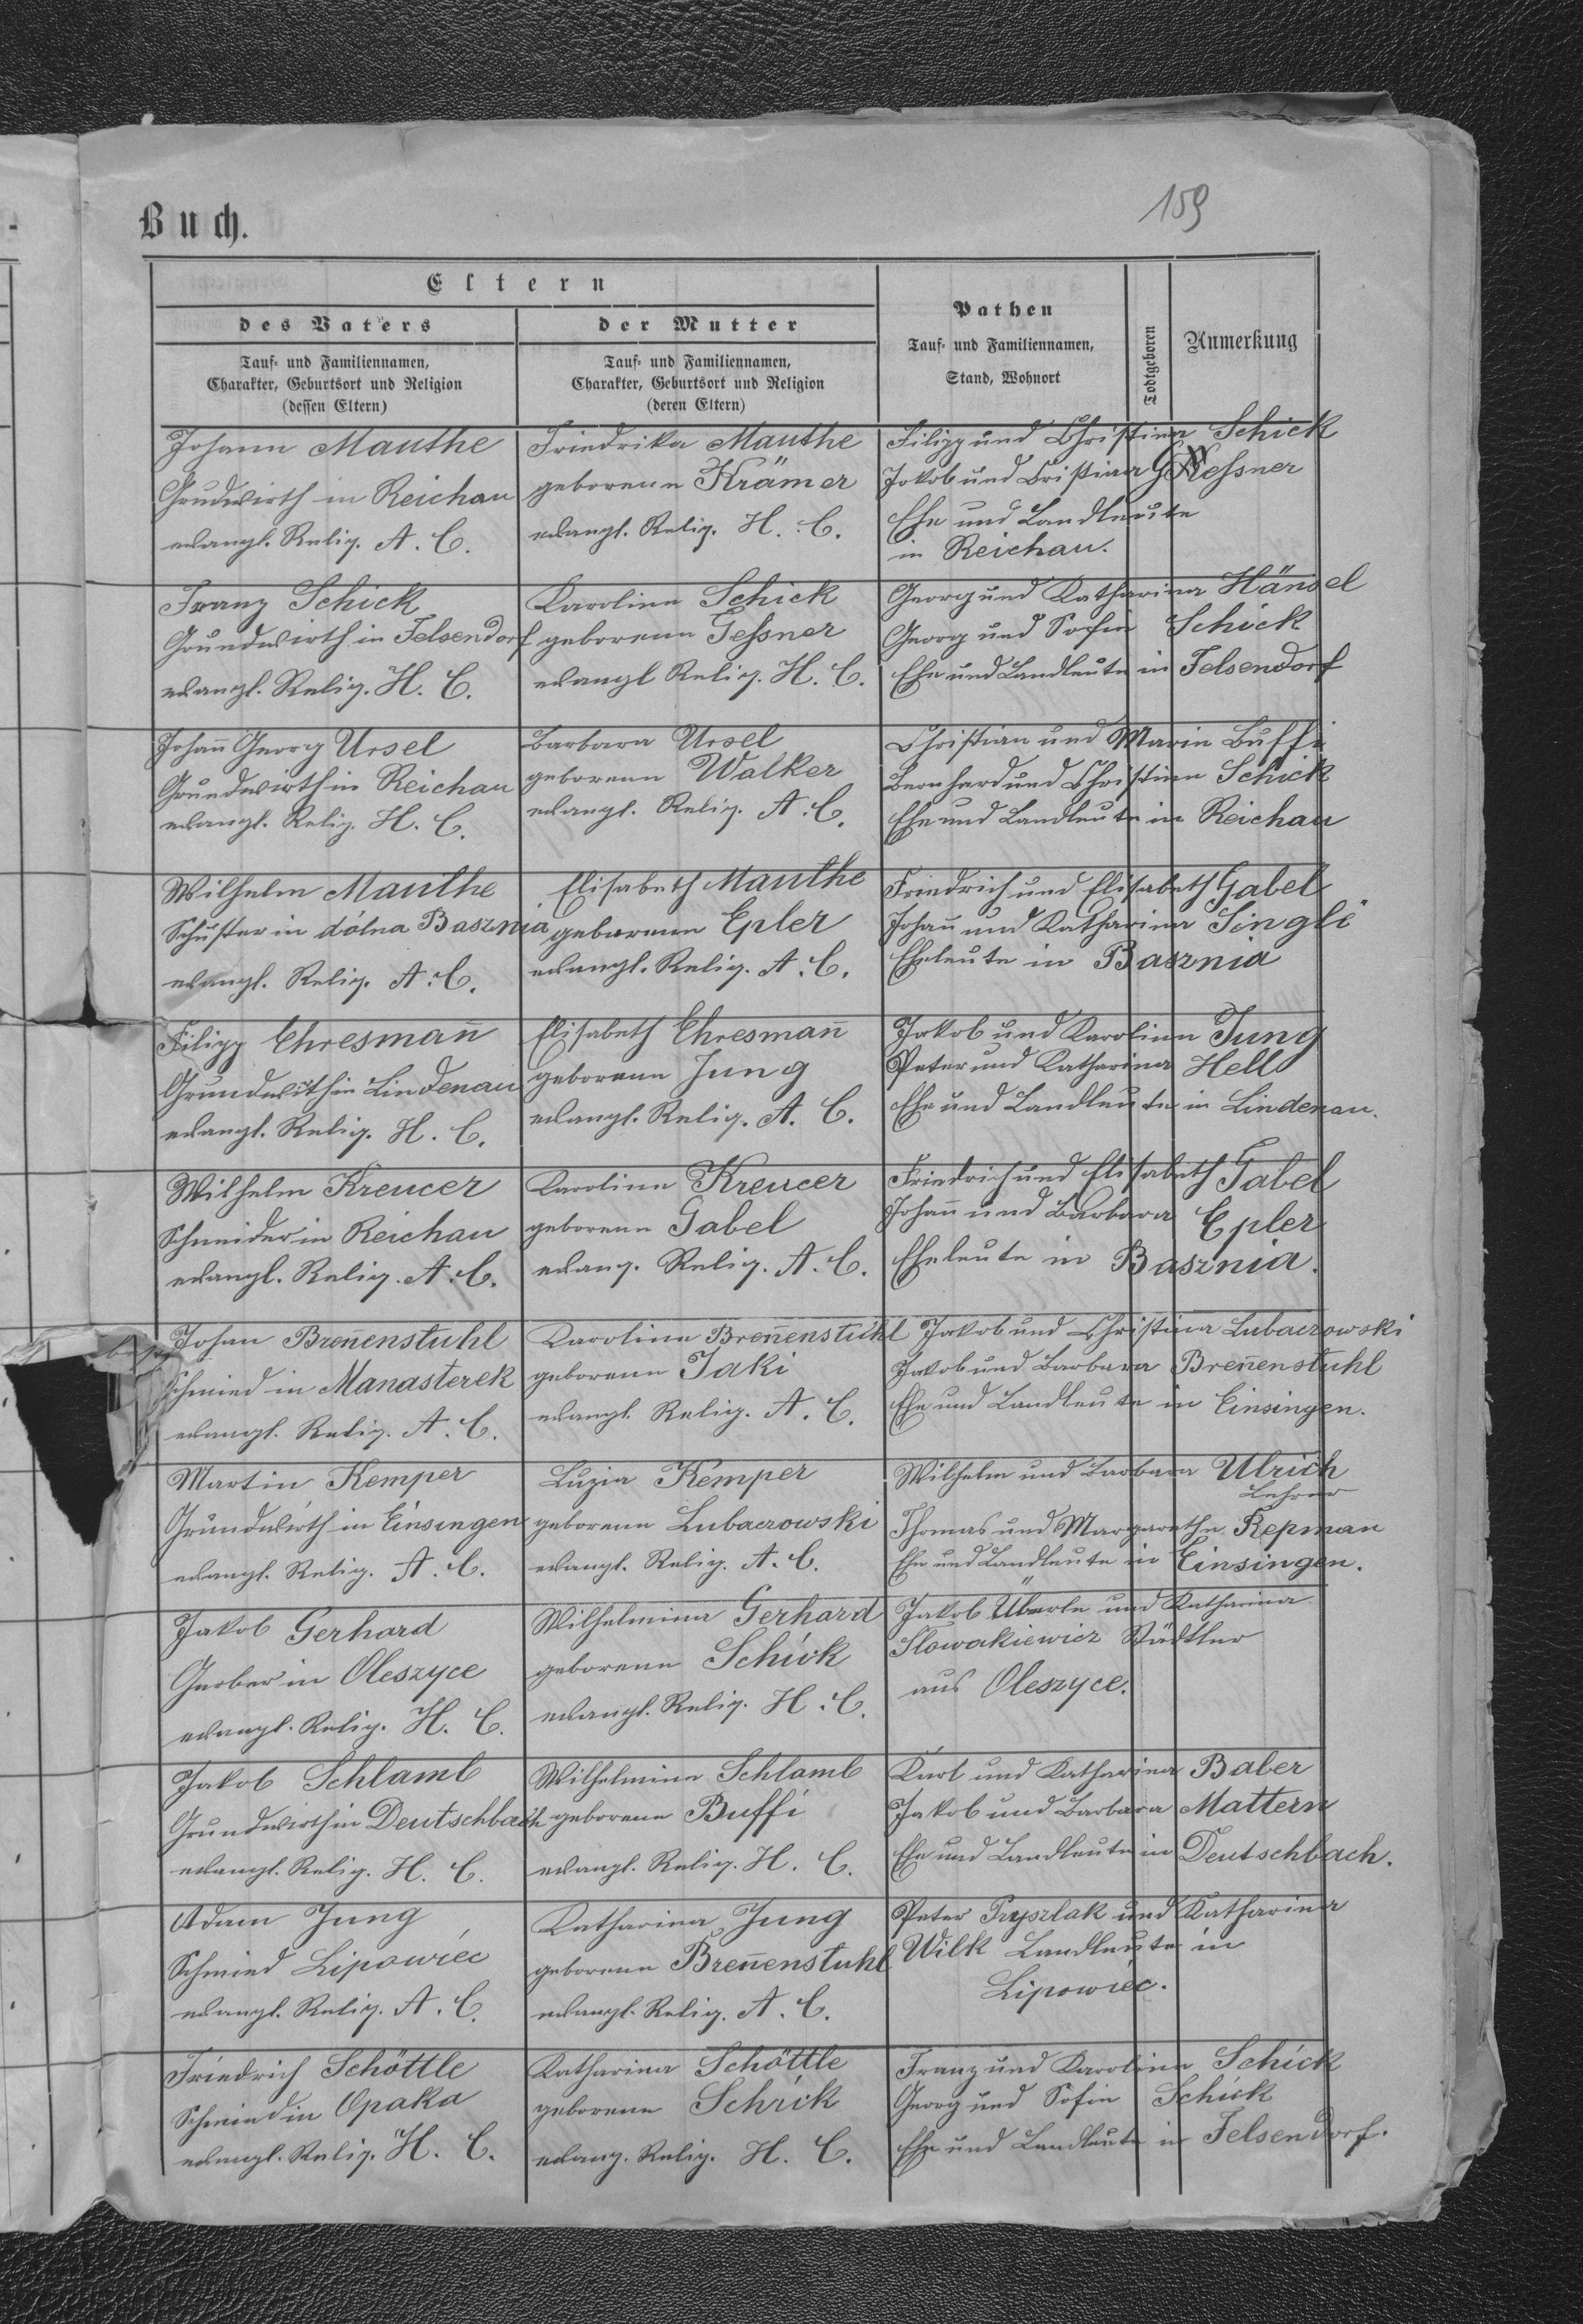 159
Buch.
Eltern
des Vaters
Tauf- und Familiennamen,
Charakter, Geburtsort und Religion
(dessen Eltern)
der Mutter
Tauf- und Familiennamen,
Charakter, Geburtsort und Religion
(deren Eltern)
Pathen
Tauf- und Familiennamen,
Stand, Wohnort
Todtgeboren
Anmerkung
Johann Mauthe
Grudwirth in Reichau
evangl. Relig. A. C.
Friedrika Mauthe
geborene Krämer
evangl. Relig. H. C.
Filipp und Christina Schick
Jakob und Cristina Gessner
Ehe und Landleute
in Reichau.
Franz Schick
Grundwirth in Felsendorf
evangl. Relig. H. C.
Karolina Schick
geborene Gessner
evangl Relig. H. C.
Georg und Katharina Hänsel
Georg und Sofie Schick
Ehe und Landleute in Felsendorf
Johan̄ Georg Ursel
Grundwirth in Reichau
evangl. Relig. H. C.
Barbara Ursel
geborene Walker
evangl. Relig. A. C.
Christian und Marie Buffi
Bernhard und Christine Schick
Ehe und Landleute in Reichau
Wilhelm Mauthe
Schuster in dólna Basznia
evangl. Relig. A. C.
Elisabeth Mauthe
geborene Epler
evangl. Relig. A. C.
Friedrich und Elisabeth Gabel
Johan̄ und Katharina Single
Eheleute in Basznia
Filipp Ehresman̄
Grundwirth in Lindenau
evangl. Relig. H. C.
Elisabeth Ehresman̄
geborene Jung
evangl. Relig. A. C.
Jakob und Karoline Jung
Peter und Katharina Hell
Ehe und Landleute in Lindenau.
Wilhelm Kreucer
Schneider in Reichau
evangl. Relig. A. C.
Karoline Kreucer
geborene Gabel
evang. Relig. A. C.
Friedrich und Elisabeth Gabel
Johan̄ und Barbara Epler
Eheleute in Basznia.
Johan Bren̄enstuhl
Schmied in Manasterek
evangl. Relig. A. C.
Karolina Bren̄enstuhl
geborene Jaki
evangl. Relig. A. C.
Jakob und Christina Lubaczowski
Jakob und Barbara Bren̄enstuhl
Ehe und Landleute in Einsingen.
Martin Kemper
Grundwirth in Einsingen
evangl. Relig. A. C.
Luzia Kemper
geborene Lubaczowski
evangl. Relig. A. C.
Wilhelm und Barbara Ulrich
Lehrer
Thomas und Margarethe Repman
Ehe und Landleute in Einsingen.
Jakob Gerhard
Gerber in Oleszyce
evangl. Relig. H. C.
Wilhelmina Gerhard
geborene Schick
evangl. Relig. H. C.
Jakob Überle und Katharina
Slowakiewicz Städtler
aus Oleszyce.
Jakob Schlamb
Grundwirth in Deutschbach
evangl. Relig. H. C.
Wilhelmine Schlamb
geborene Buffi
evangl. Relig. H. C.
Karl und Katharina Baber
Jakob und Barbara Mattern
Ehe und Landleute in Deutschbach.
Adam Jung
Schmied Lipowiec
evangl. Relig. A. C.
Katharina Jung
geborene Bren̄enstuhl
evangl. Relig. A. C.
Peter Pryszlak und Katharina
Wilk Landleute in
Lipowiec.
Friedrich Schöttle
Schmied in Opaka
evangl. Relig. H. C.
Katharina Schöttle
geborene Schick
evang. Relig. H. C.
Franz und Karolina Schick
Georg und Sofie Schick
Ehe und Landleute in Felsendorf.